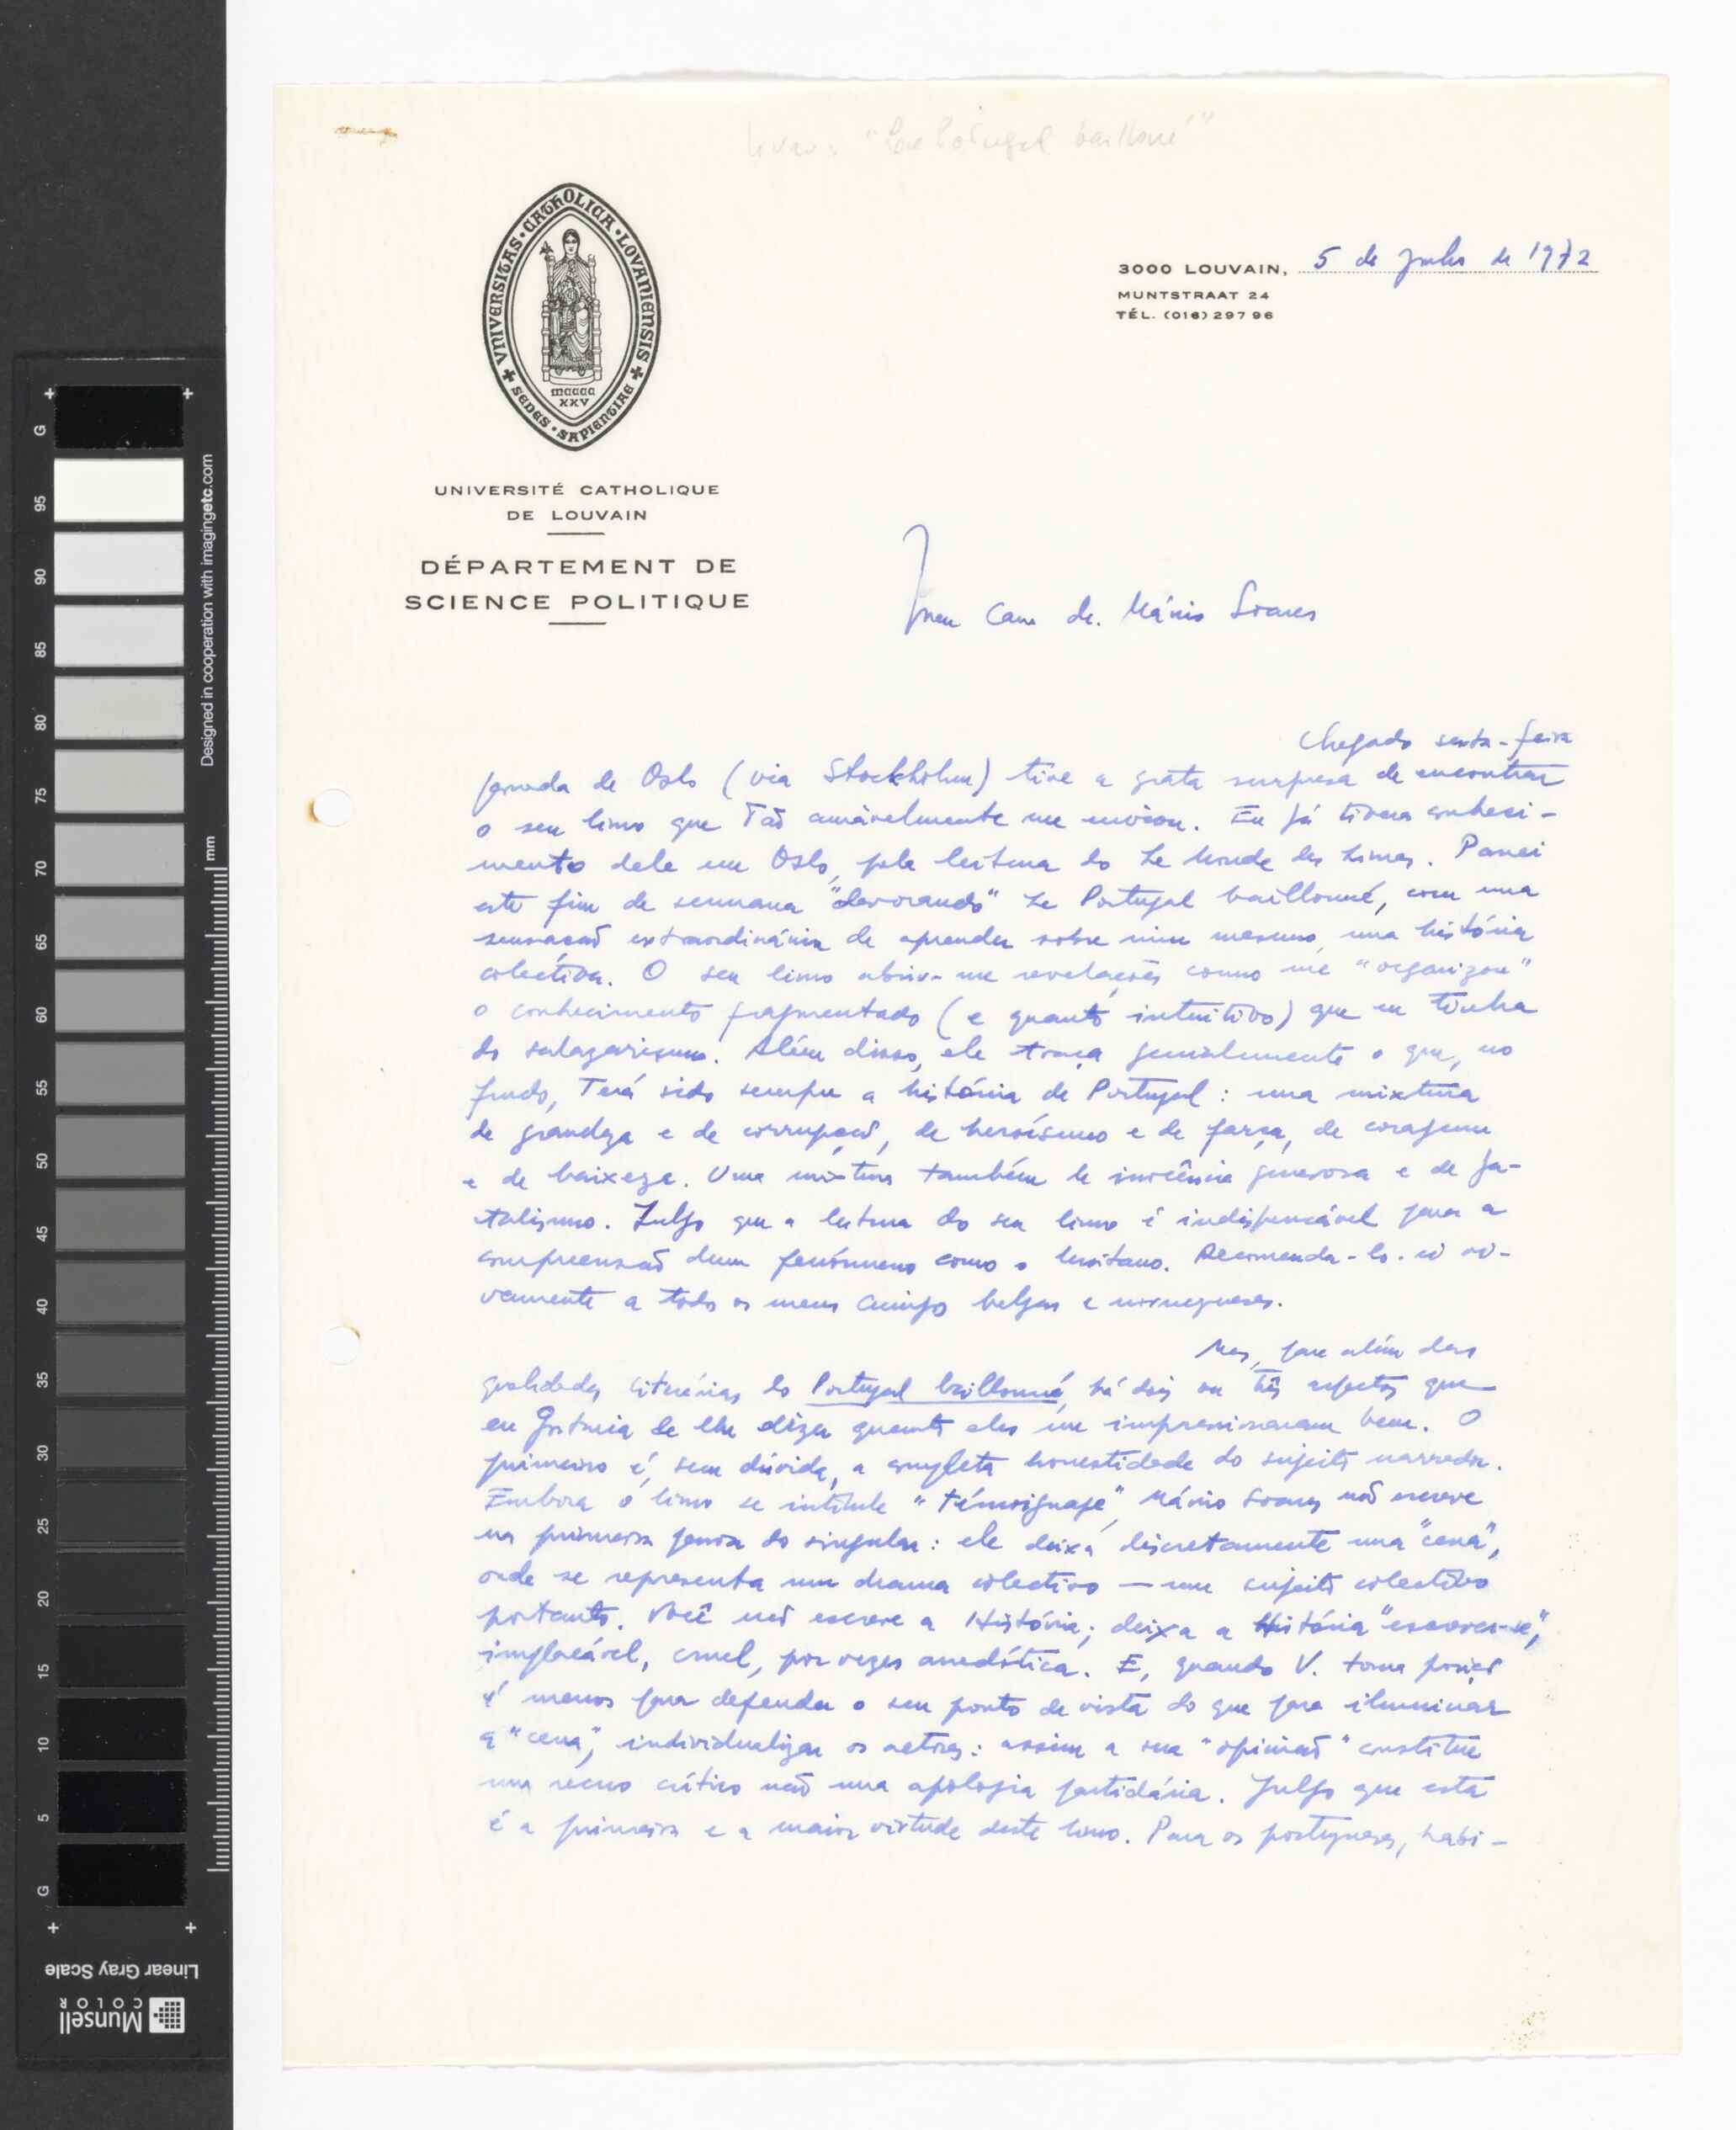 livro: "Le Portugal baillonné"
VNIVERSITAS · CATHOLICA · LOVANIENSIS
SEDES · SAPIENTIAE
MCCCC
XXV
UNIVERSITÉ CATHOLIQUE
DE LOUVAIN
DÉPARTEMENT DE
SCIENCE POLITIQUE
3000 LOUVAIN, 5 de de 1972
MUNTSTRAAT 24
TÉL. (016) 297 96
meu caro dr. Mário Soares
Chegado sexta-feira
passada de Oslo (via Stockholm) tive a grata surpresa de encontrar
o seu livro que tão amàvelmente me enviou. Eu já tivera conheci-
mento dele em Oslo, pela leitura do Le Monde des Livres. Passei
este fim de semana "devorando" Le Portugal baillonné, com uma
sensação extraordinária de aprender sobre mim mesmo, uma história
colectiva. O seu livro abriu-me revelações como me "organizou"
o conhecimento fragmentado (e quanto intuitivo) que eu tinha
do salazarismo. Além disso, ele traça genialmente o que, no
fundo, terá sido sempre a história de Portugal: uma mixtura
de grandeza e de corrupção, de heroísmo e de farsa, de coragem
e de baixeza. Uma mixtura também de inocência generosa e de fa-
talismo. Julgo que a leitura do seu livro é indispensável para a
compreensão dum fenómeno como o lusitano. Recomenda-lo-ei vi-
vamente a todos os meus amigos belgas e noruegueses.
Mas, para além das
qualidades literárias do Portugal baillonné, há dois ou três aspectos que
eu gostaria de lhe dizer quanto eles me impressionaram bem. O
primeiro é, sem dúvida, a completa honestidade do sujeito narrador.
Embora o livro se intitule "témoignage", Mário Soares não escreve
na primeira pessoa do singular: ele deixa discretamente uma "cena",
onde se representa um drama colectivo — um sujeito colectivo
portanto. Você não escreve a História; deixa a História "escrever-se",
implacável, cruel, por vezes anedótica. E, quando V. toma posição
é menos para defender o seu ponto de vista do que para iluminar
a "cena", individualizar os actores: assim a sua "opinião" constitue
um crítico não uma apologia partidária. Julgo que esta
é a primeira e a maior virtude deste livro. Para os portugueses, habi-
Designed in cooperation with imagingetc.com
mm
G
95
90
85
80
75
70
65
60
55
50
45
40
35
30
25
20
15
10
5
G
Linear Gray Scale
Munsell
COLOR